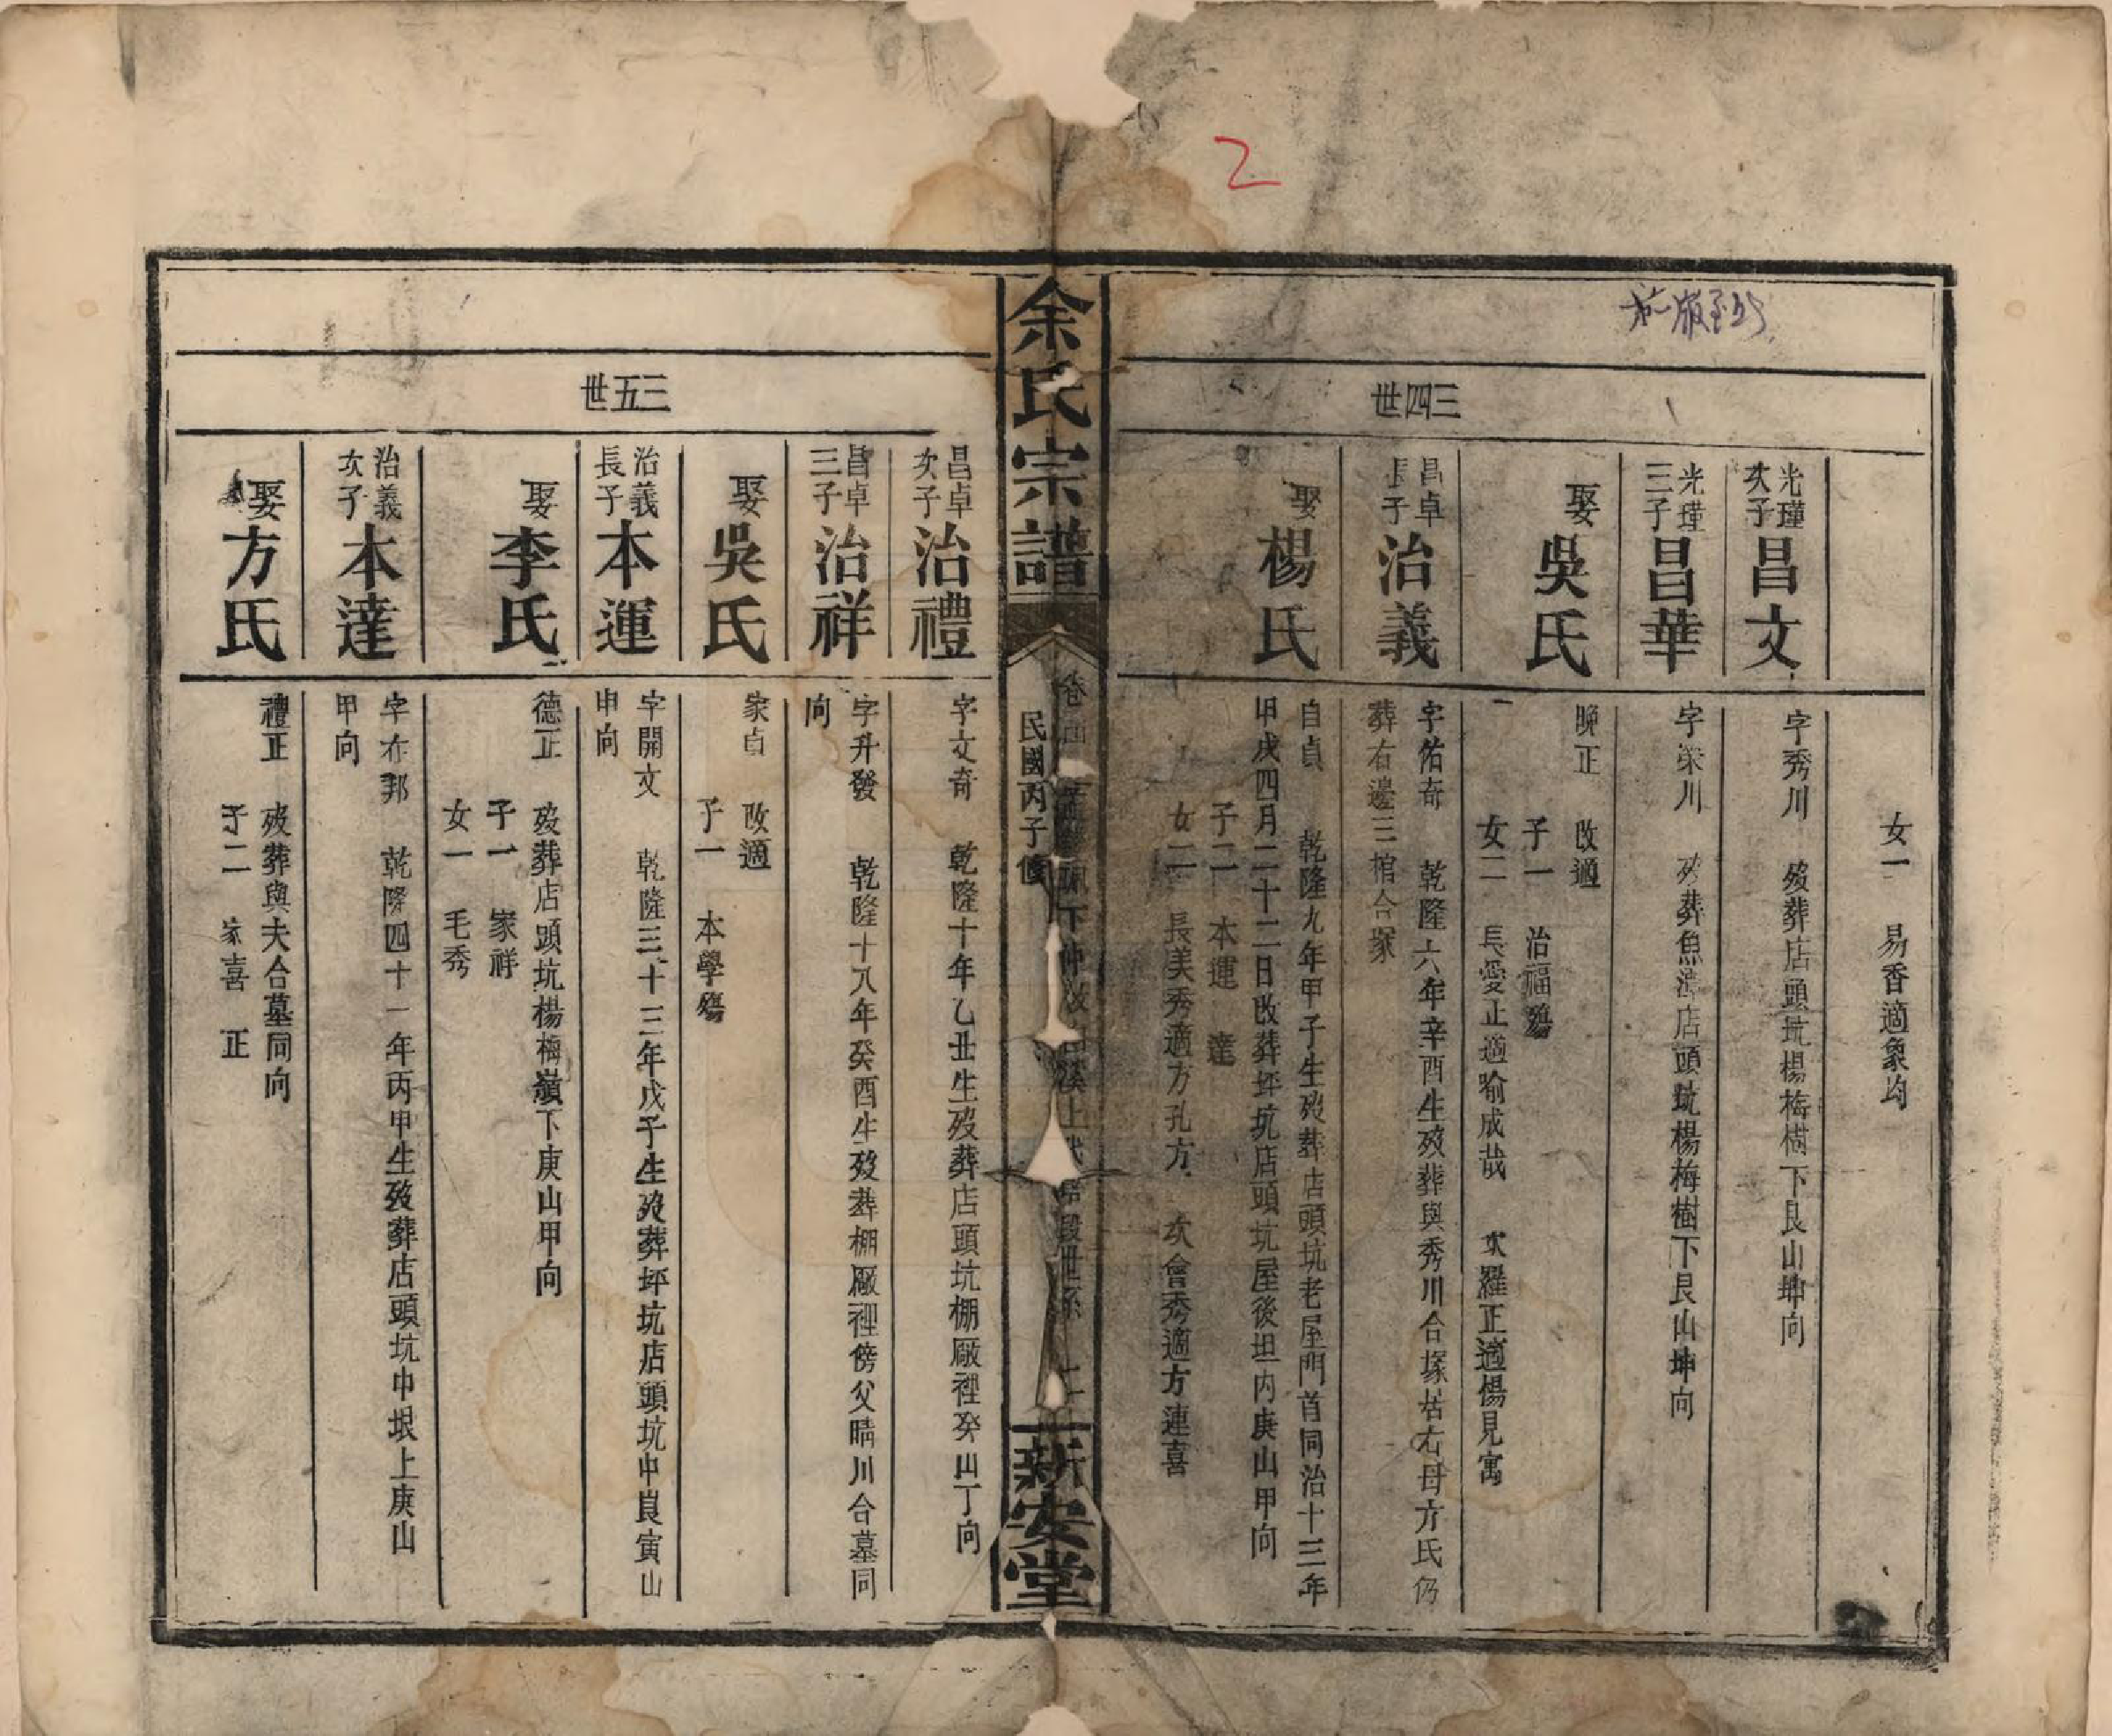 2
三四世
女一 易香適象均
光瑾次子 昌文
字秀川 歿葬店頭坑楊梅樹下艮山坤向
光瑾三子 昌華
字榮川 歿葬魚潭店頭坑楊梅樹下艮山坤向
娶 吳氏
晚正 改適
子一 治福殤
女二 長愛正適喻成哉 次羅正適楊見寓
昌卓長子 治義
字佑奇 乾隆六年辛酉生歿葬與秀川合塚居右母方氏仍
葬右邊三棺合塚
娶 楊氏
自貞 乾隆九年甲子生歿葬店頭坑老屋門首同治十三年
甲戌四月二十二日改葬坪坑店頭坑屋後坦內庚山甲向
子二 本運 達
女二 長美秀適方孔方 次會秀適方連喜
余氏宗譜
卷 下 上 世系
民國丙子修
新安堂
三五世
昌卓次子 治禮
字文奇 乾隆十年乙丑生歿葬店頭坑棚廠裡癸山丁向
昌卓三子 治祥
字升發 乾隆十八年癸酉生歿葬棚廠裡傍父晴川合墓同
向
娶 吳氏
家貞 改適
子一 本學殤
治義長子 本運
字開文 乾隆三十三年戊子生歿葬坪坑店頭坑中艮寅山
申向
娶 李氏
德正 歿葬店頭坑楊梅嶺下庚山甲向
子一 家祥
女一 毛秀
治義次子 本達
字在邦 乾隆四十一年丙申生歿葬店頭坑中垠上庚山
甲向
娶 方氏
禮正 歿葬與夫合墓同向
子二 家喜 正